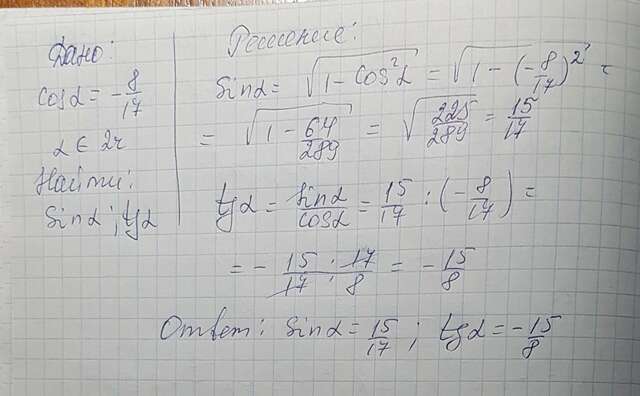 Дано:
cosα = -8/17
α ∈ 2ч
Найти:
Sinα; tgα
Решение:
Sinα = √(1 - cos²α) = √(1 - (-8/17)²) =
= √(1 - 64/289) = √(225/289) = 15/17
tgα = sinα/cosα = 15/17 : (-8/17) =
= - 15 · 17/17 · 8 = - 15/8
Ответ: Sinα = 15/17; tgα = -15/8